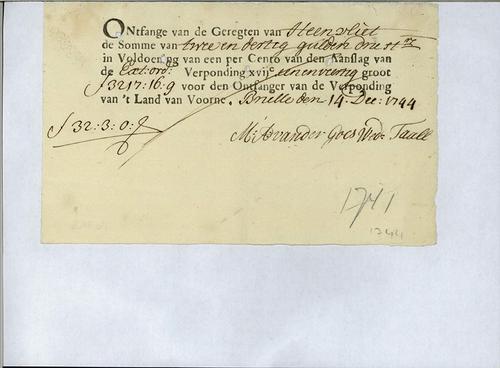 ONtfange van de Geregten van Heenvliet
de Somme van twee en dertig gulden drie st.rs
in Voldoening van een per Cento van den Aanslag van
de Ext: ord: Verponding xvijc eenenveertig groot
ƒ 3217:16:9 voor den Ontfanger van de Verponding
van 't Land van Voorne. Brielle den 14 Dec: 1744
ƒ 32:3:0:
M: Avander Goes Wed: Taull
1741
1744